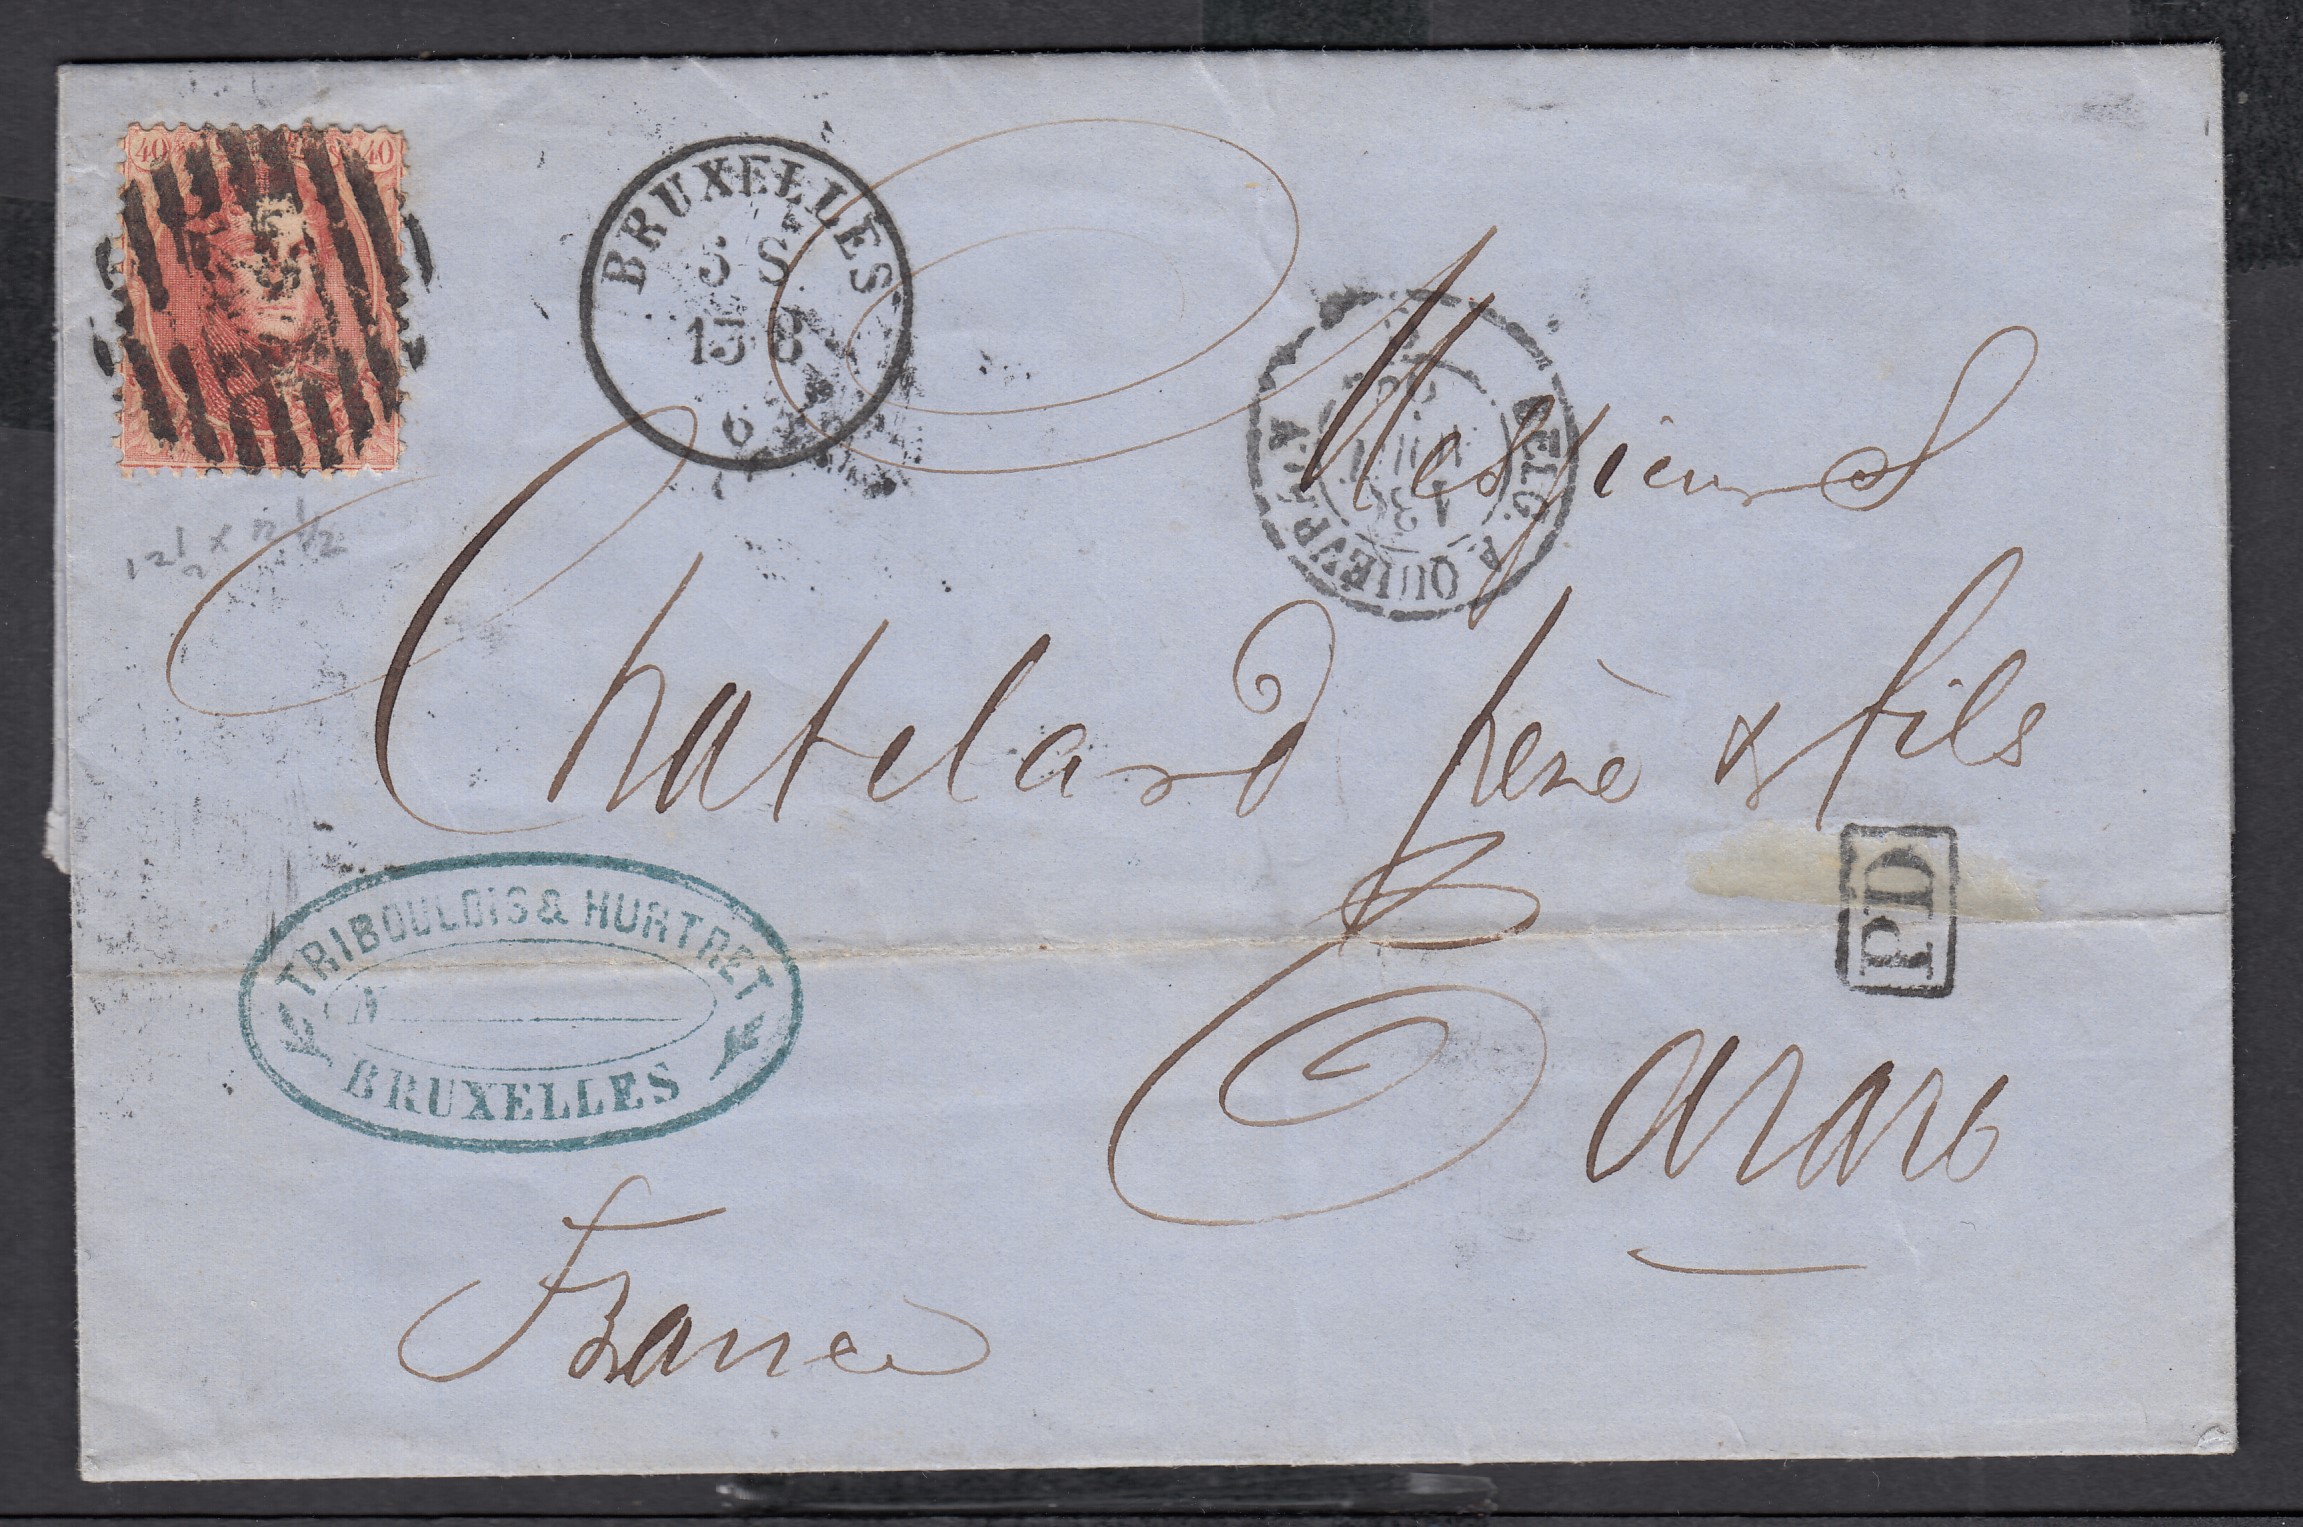 40 40
BRUXELLES
5 S
13 8
6
12 1/2 x 12 1/2
BELG. A QUIÉVRAIN
Messieurs
Chatelard père & fils
PD
Tarare
TRIBOULOIS & HURTRET
N
BRUXELLES
France